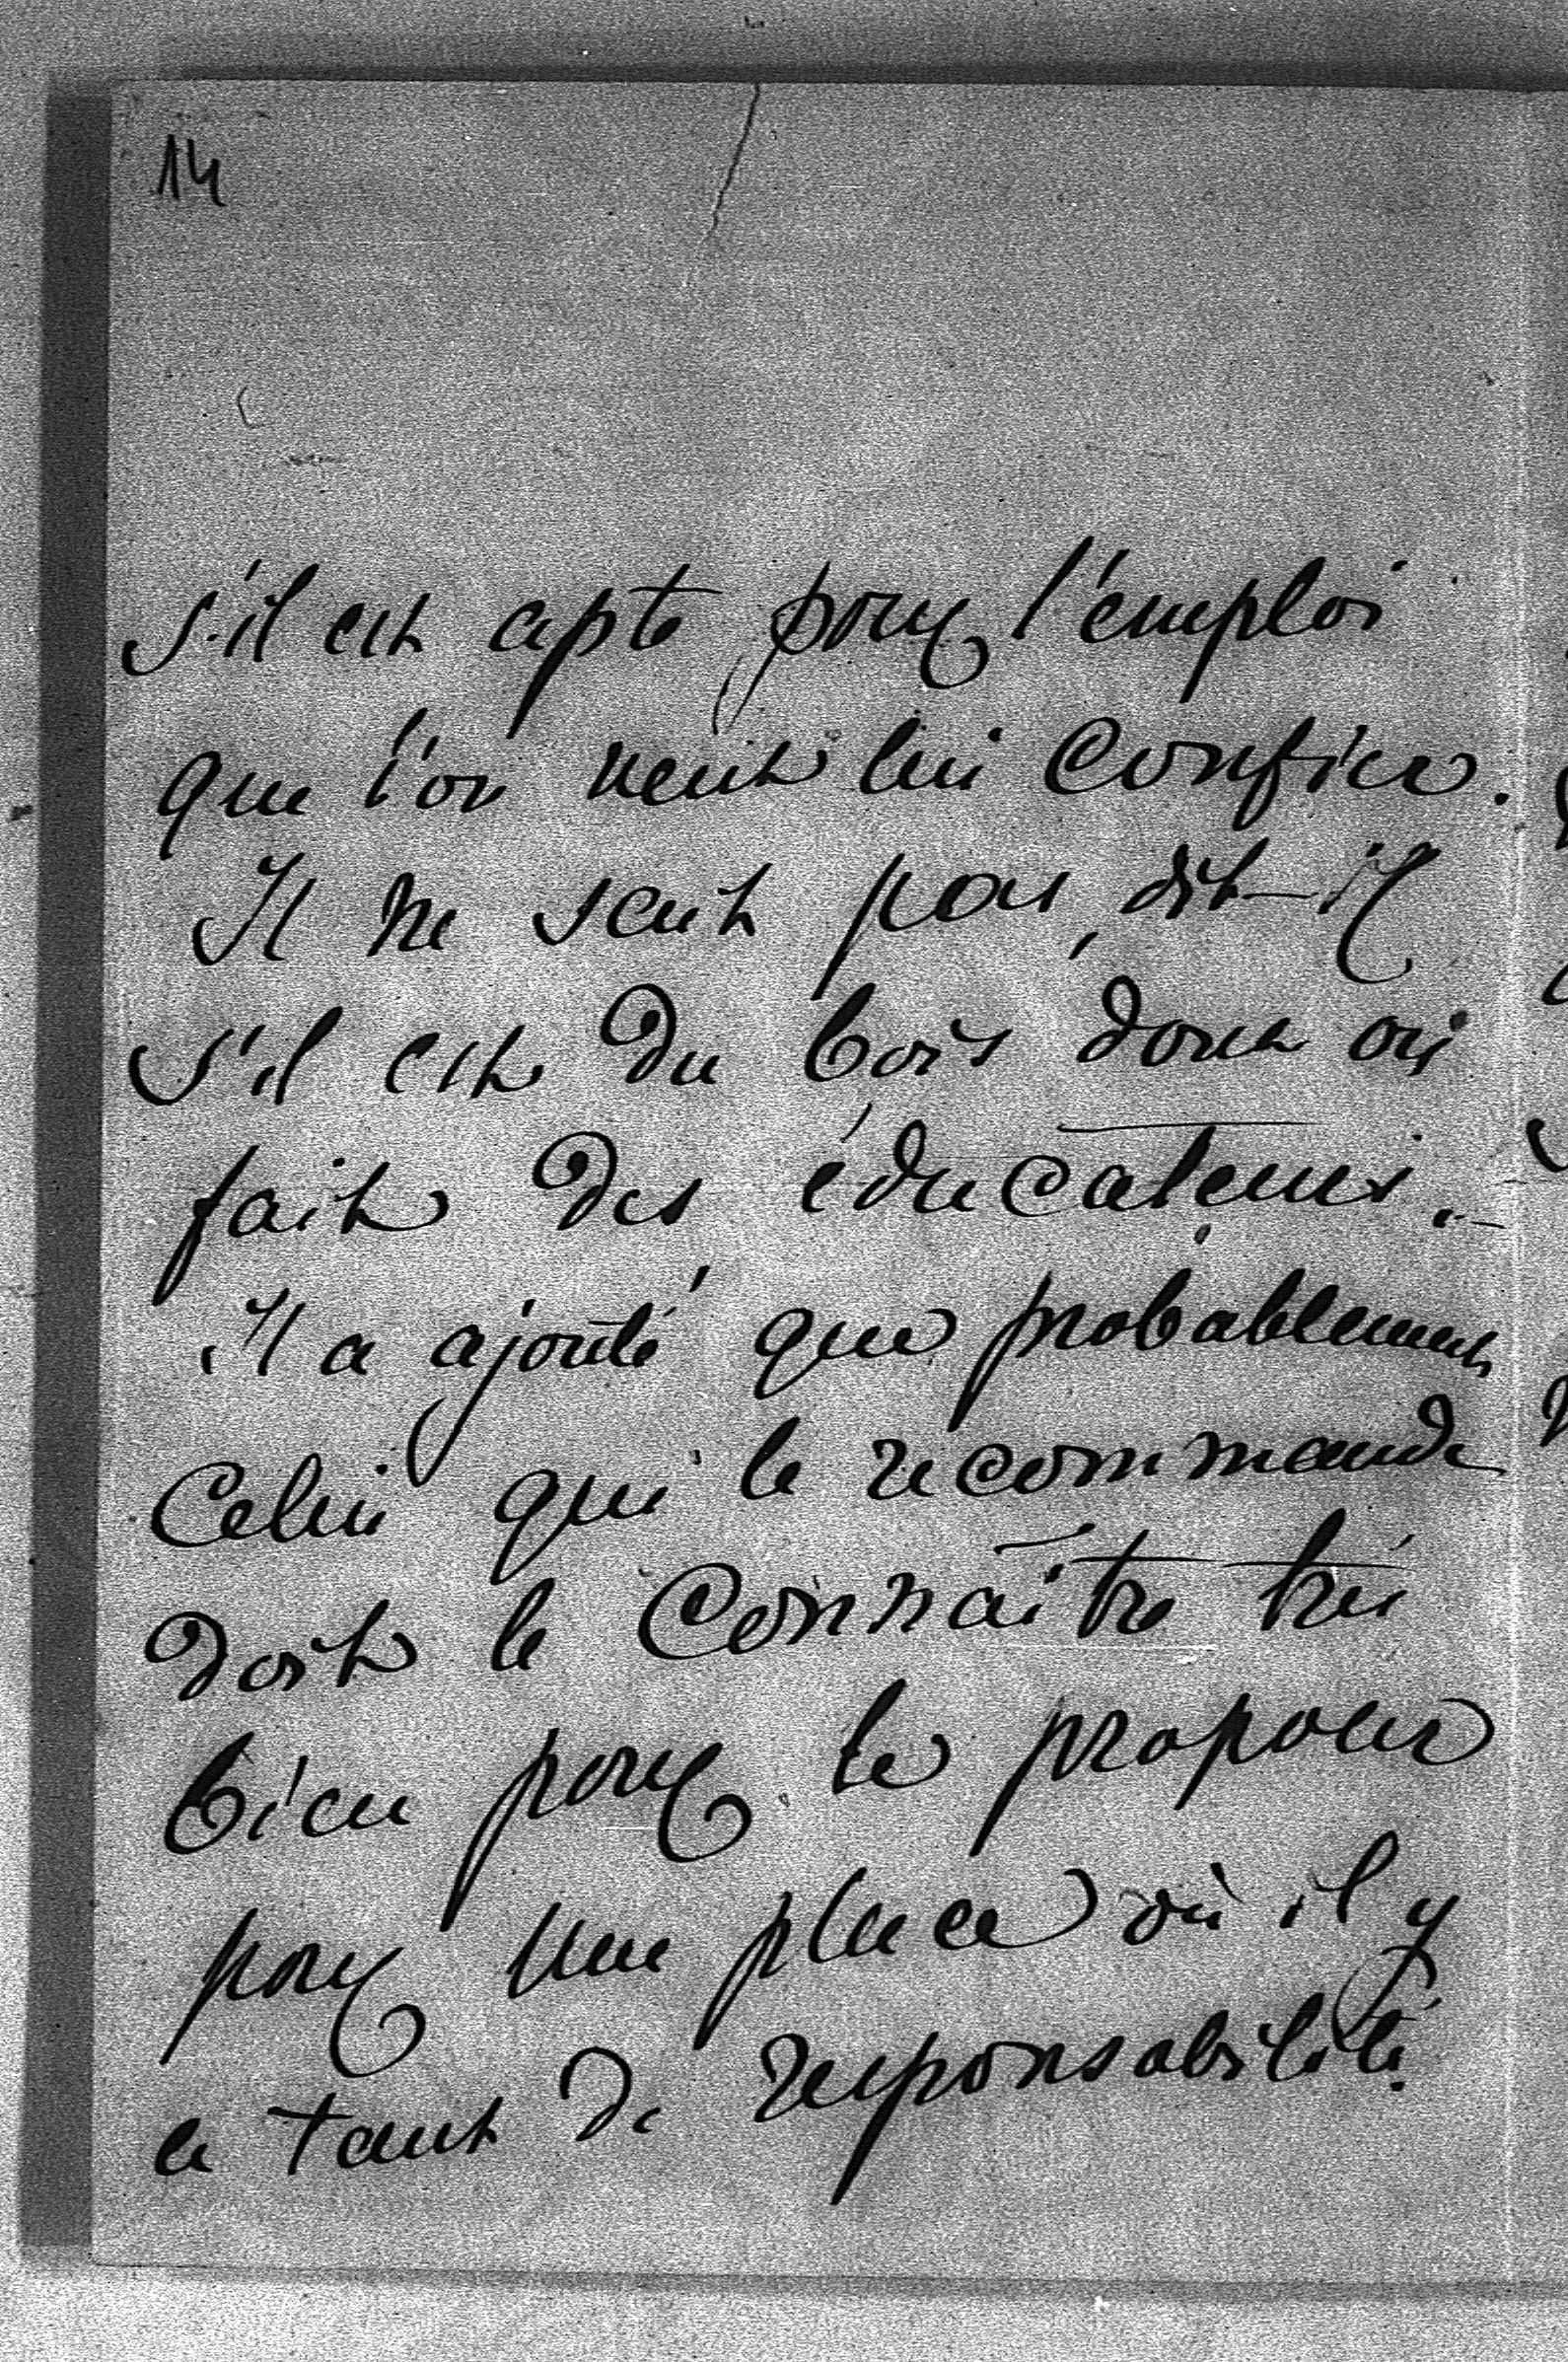 14
s'il est apte pour l'emploi
que l'on veut lui confier.
Il ne sait pas, dit-il
s'il est du bois dont on
fait des éducateurs.
Il a ajouté que probablement
Celui qui le recommande
doit le Connaître très
bien pour le proposer
pour une place où il y
a tant de responsabilité.